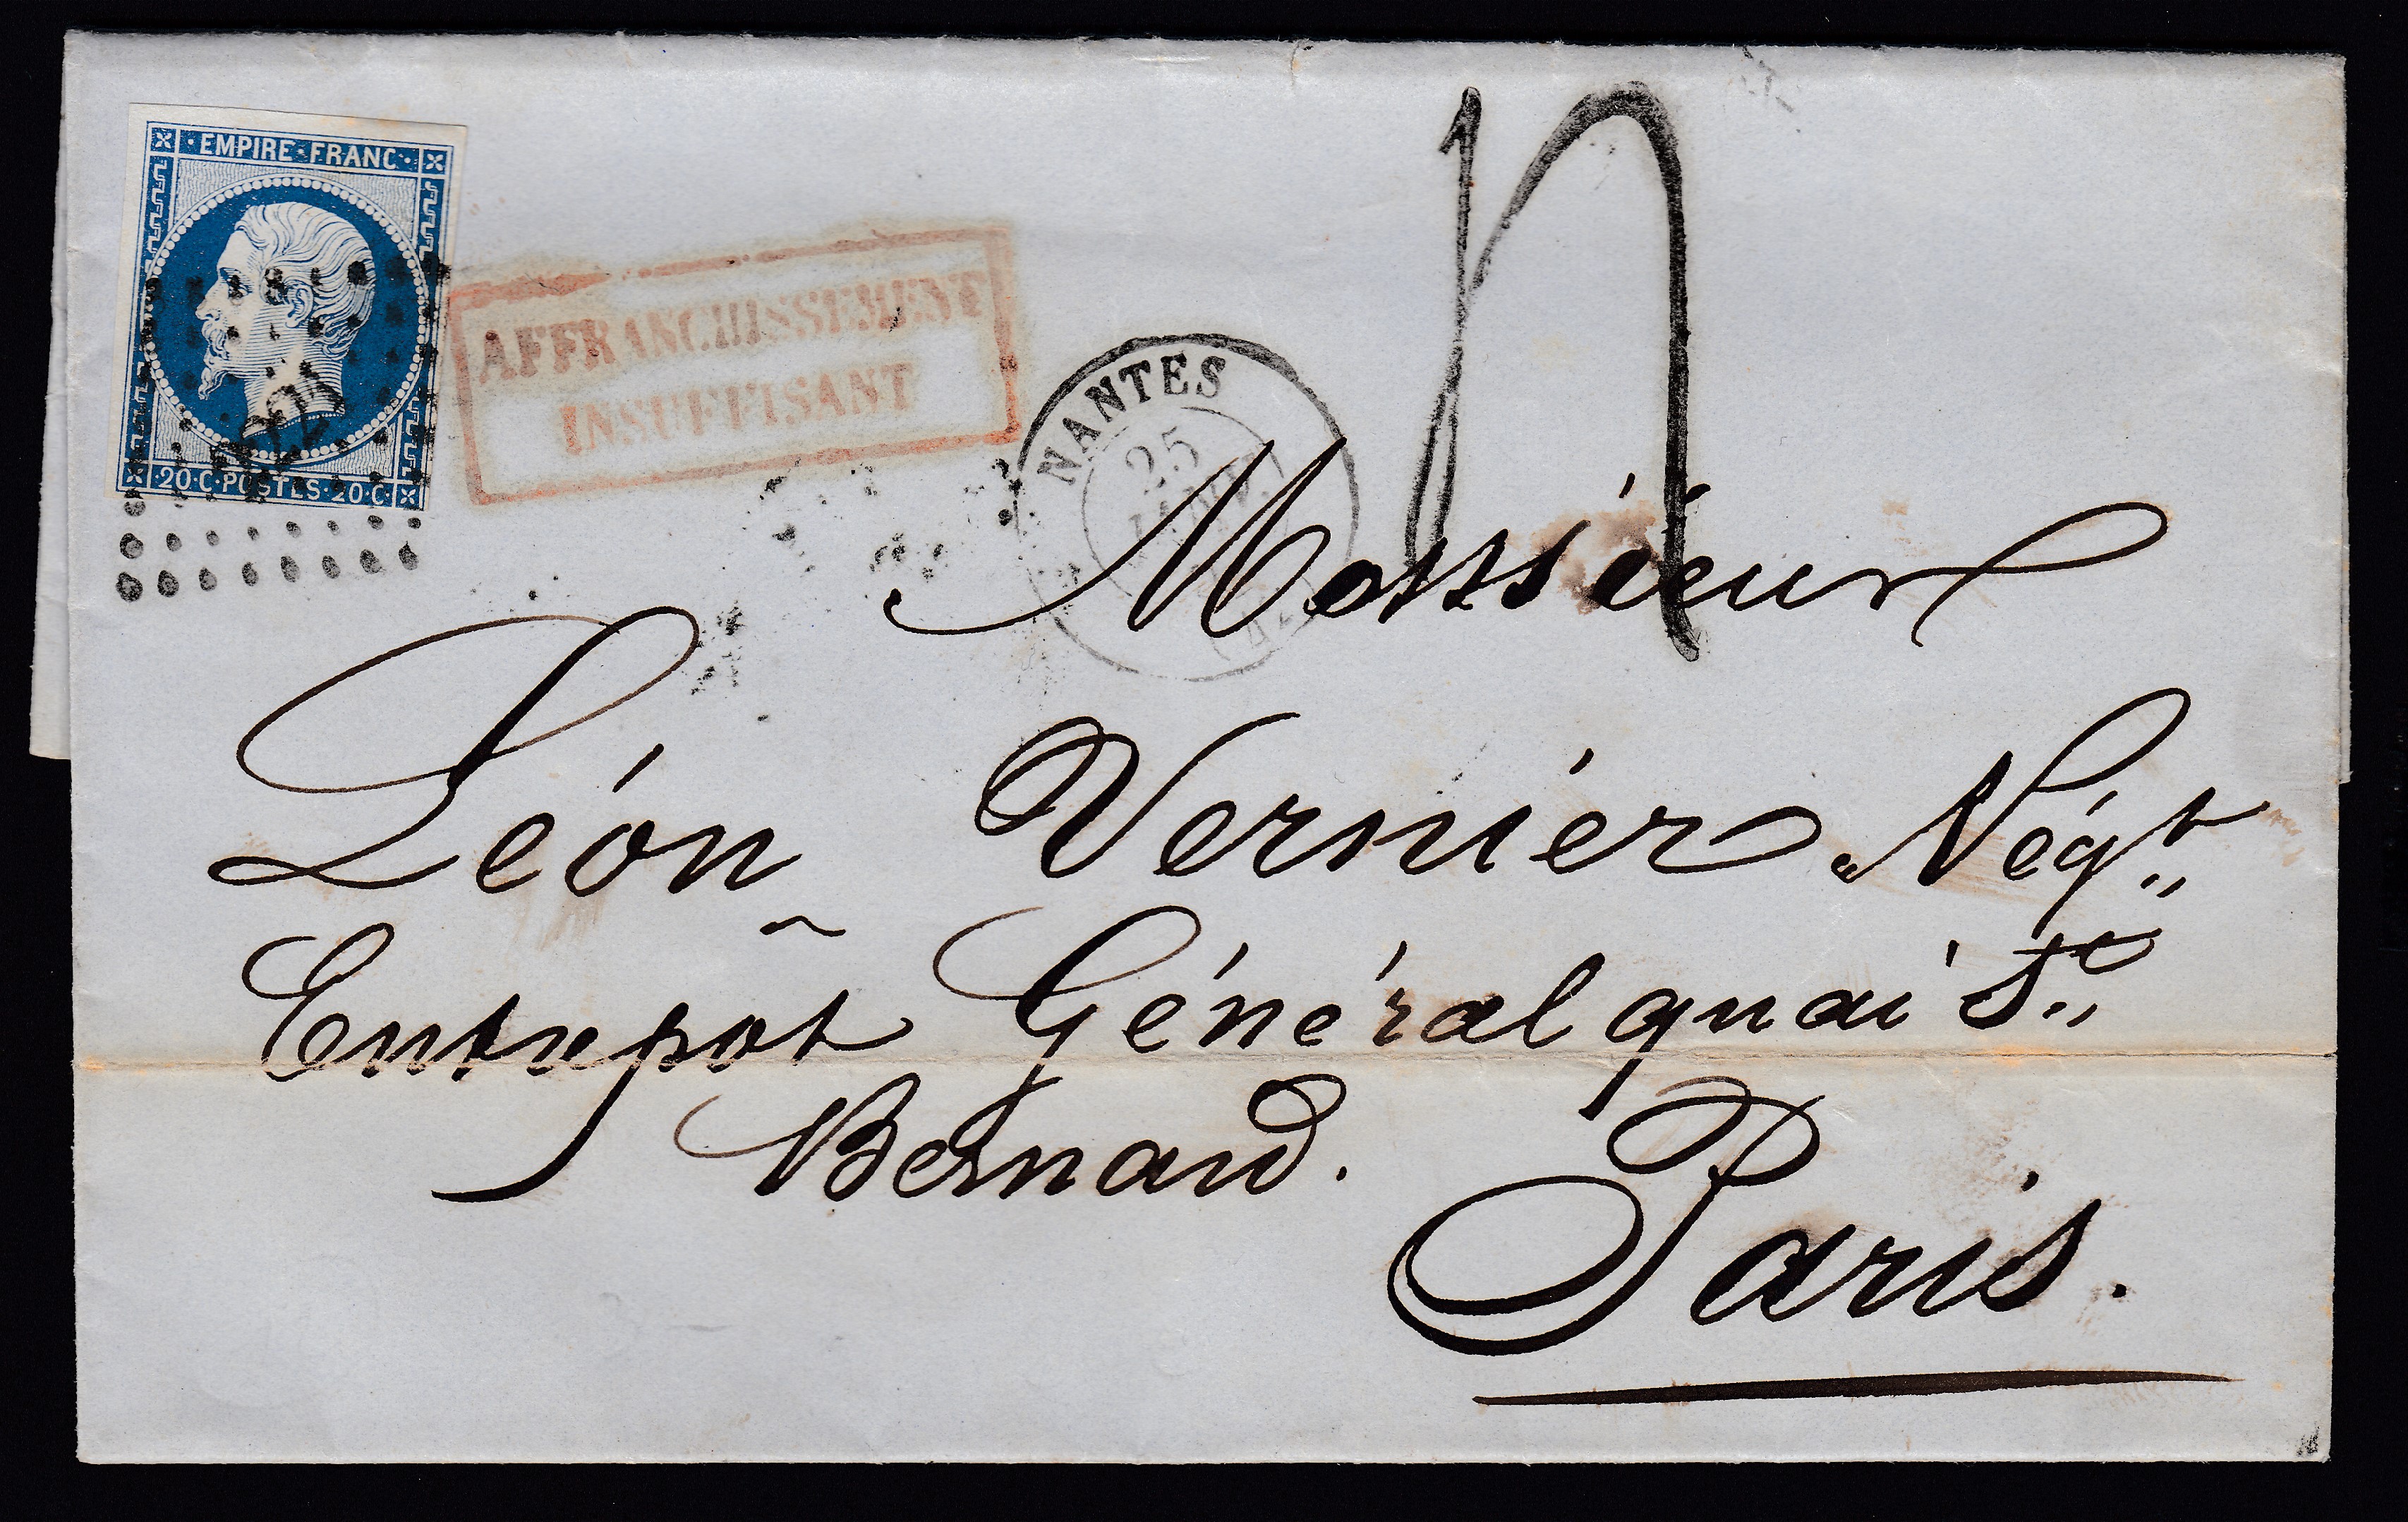 EMPIRE·FRANC·
20·C·POSTES·20·C·
AFFRANCHISSEMENT
INSUFFISANT
NANTES
25
JANV.
Monsieur
Léon Vernier Négt.
Entrepôt Général quai St.
Bernard.
Paris.